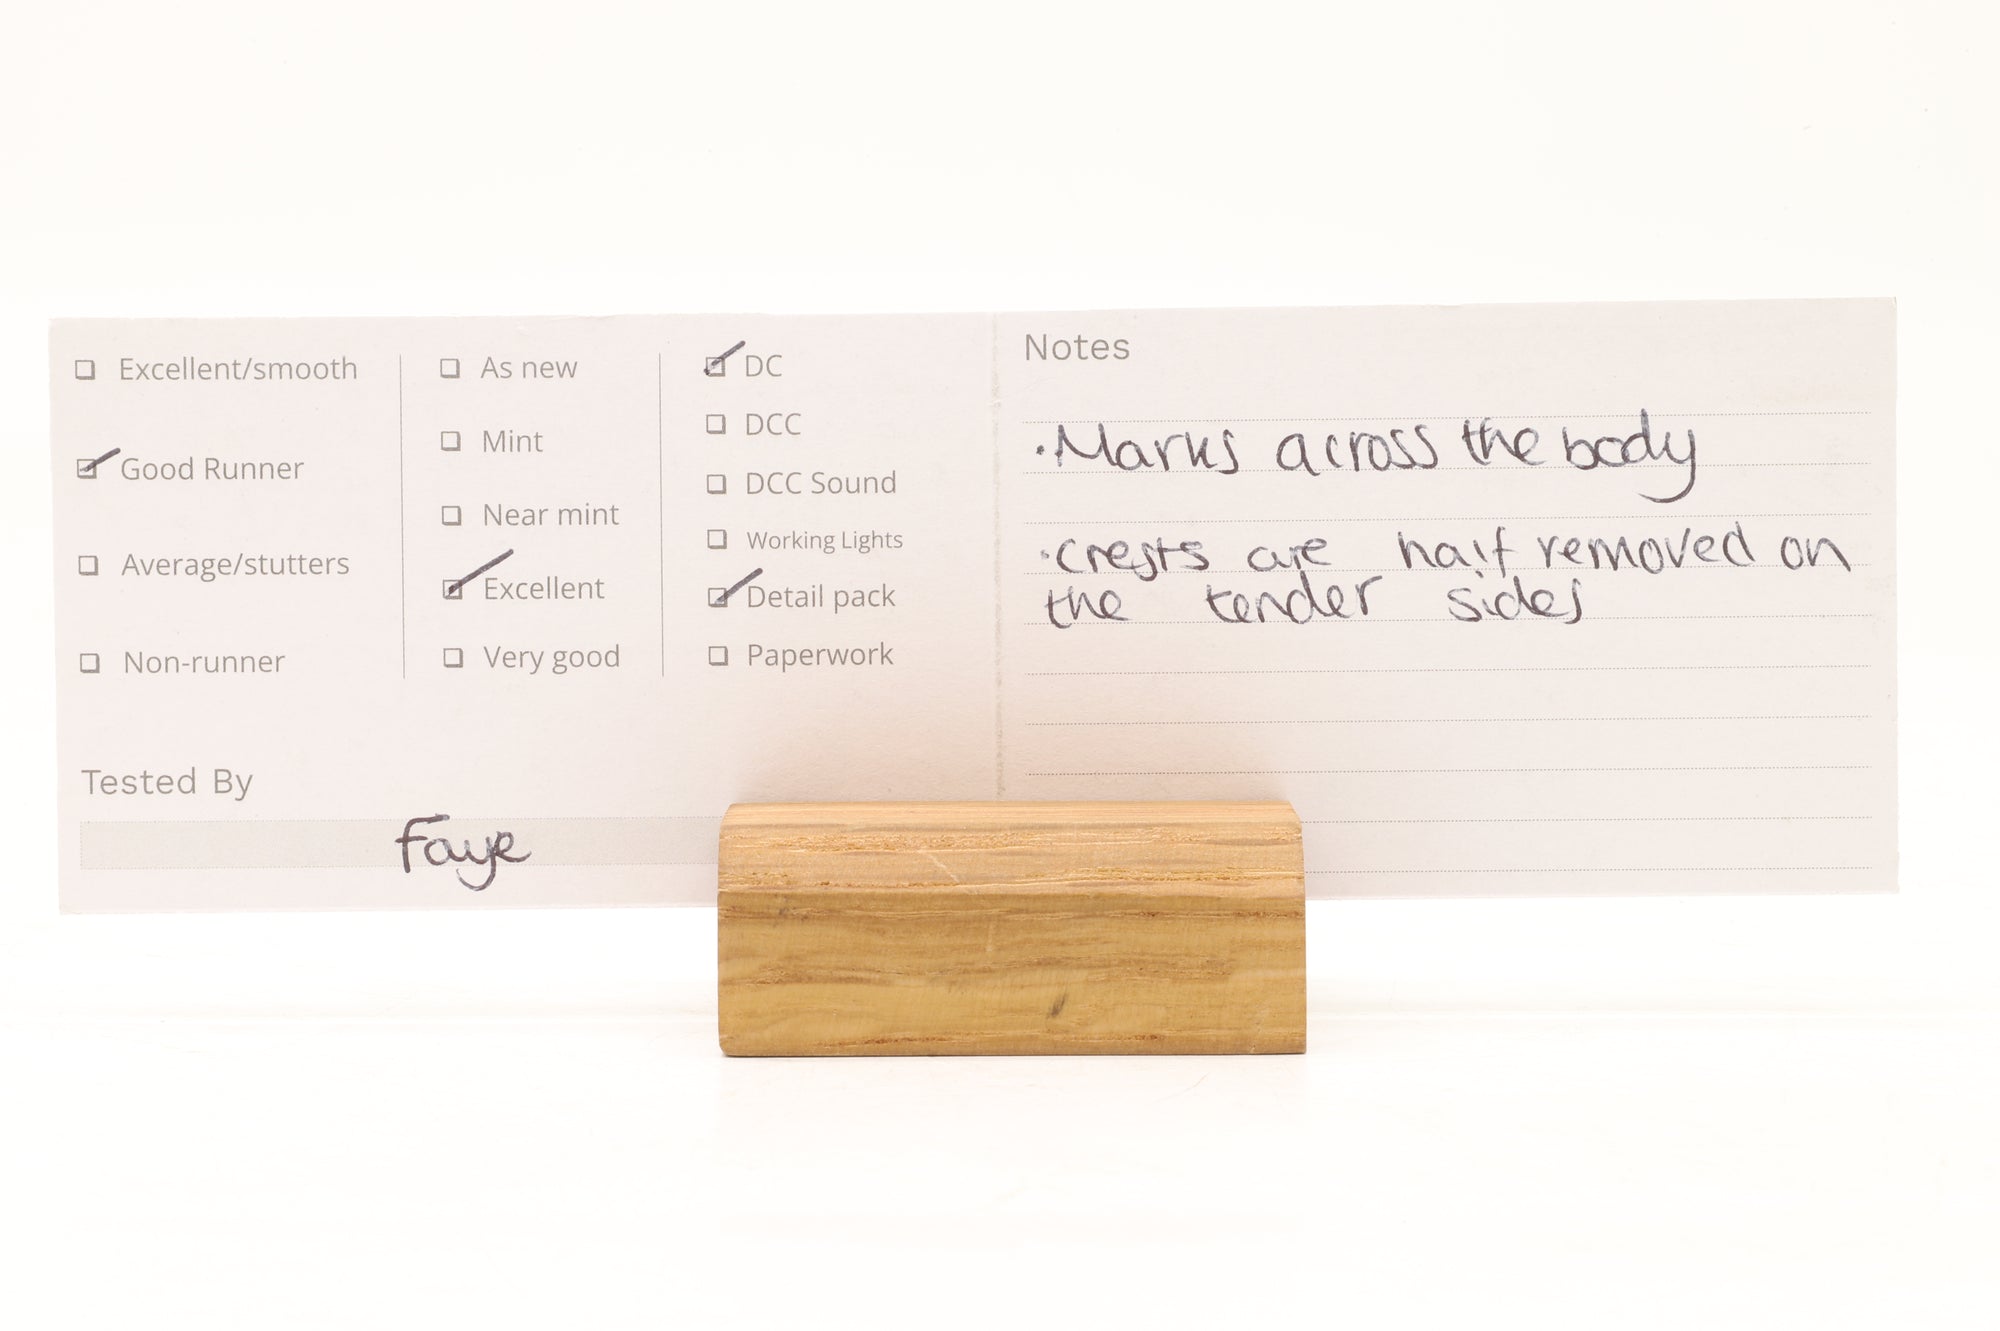 Excellent/smooth
Good Runner
Average/stutters
Non-runner
As new
Mint
Near mint
Excellent
Very good
DC
DCC
DCC Sound
Working Lights
Detail pack
Paperwork
Tested By
Faye
Notes
·Marks across the body
·Crests are half removed on
the tender sides